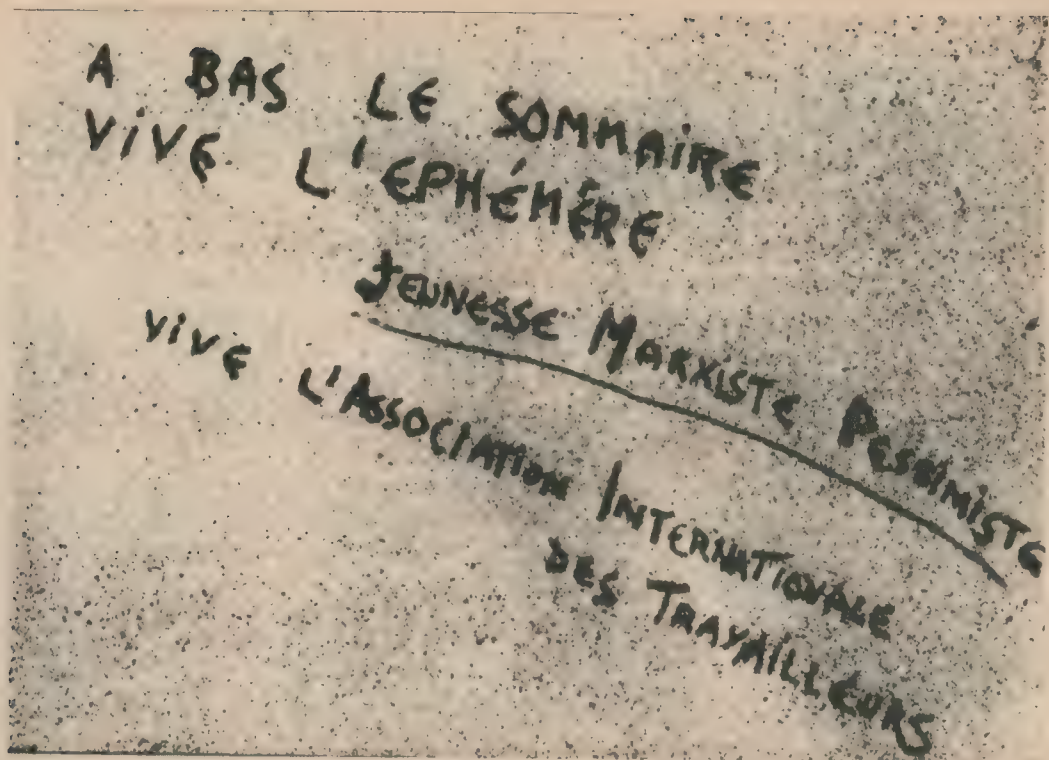 A BAS LE SOMMAIRE
VIVE L'EPHÉMÈRE
JEUNESSE MARXISTE PESSIMISTE
VIVE L'ASSOCIATION INTERNATIONALE
DES TRAVAILLEURS